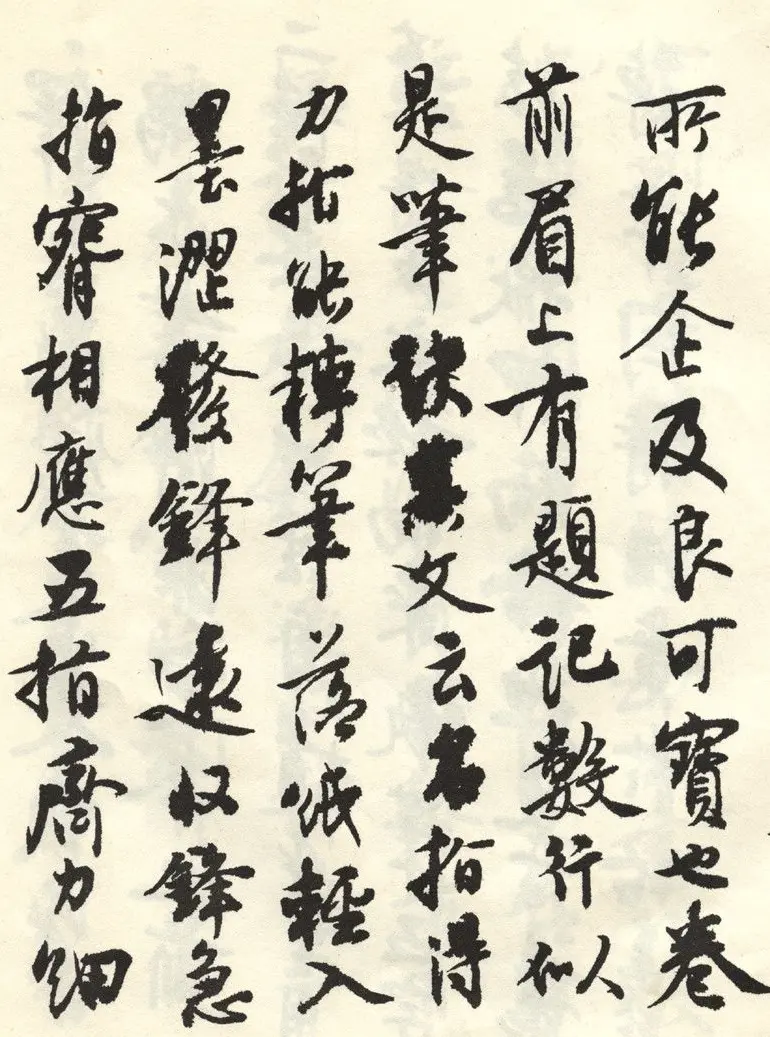 所能企及良可寶也卷
前眉上有題記數行似
是筆訣其文云名指得
力指能轉筆落紙輕入
墨澀發鋒遠收鋒急
指實相應五指齊力